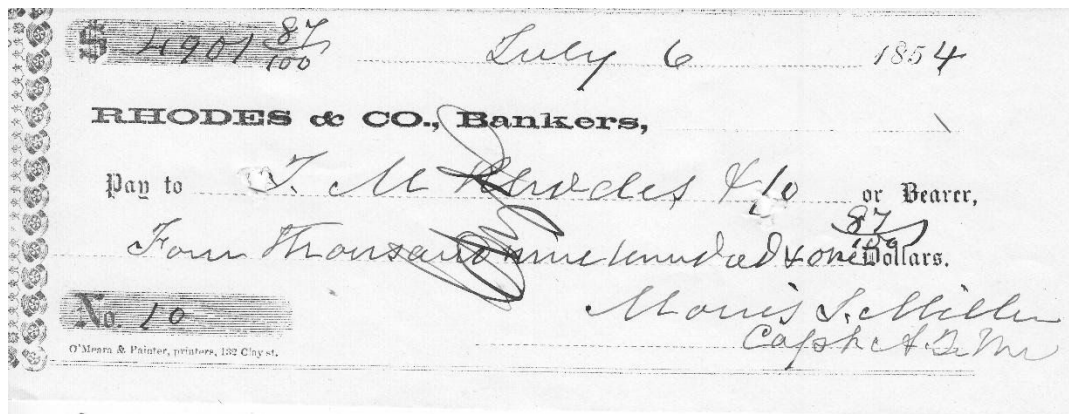 $ 4901 87/100 July 6 1854
RHODES & CO., Bankers,
Pay to J. M Rhodes & Co or Bearer,
Four Thousand nine hundred & one 87/100 Dollars.
No. 10 Morris S. Miller
O'Meara & Painter, printers, 132 Clay st. Capt & A. Q. Mr